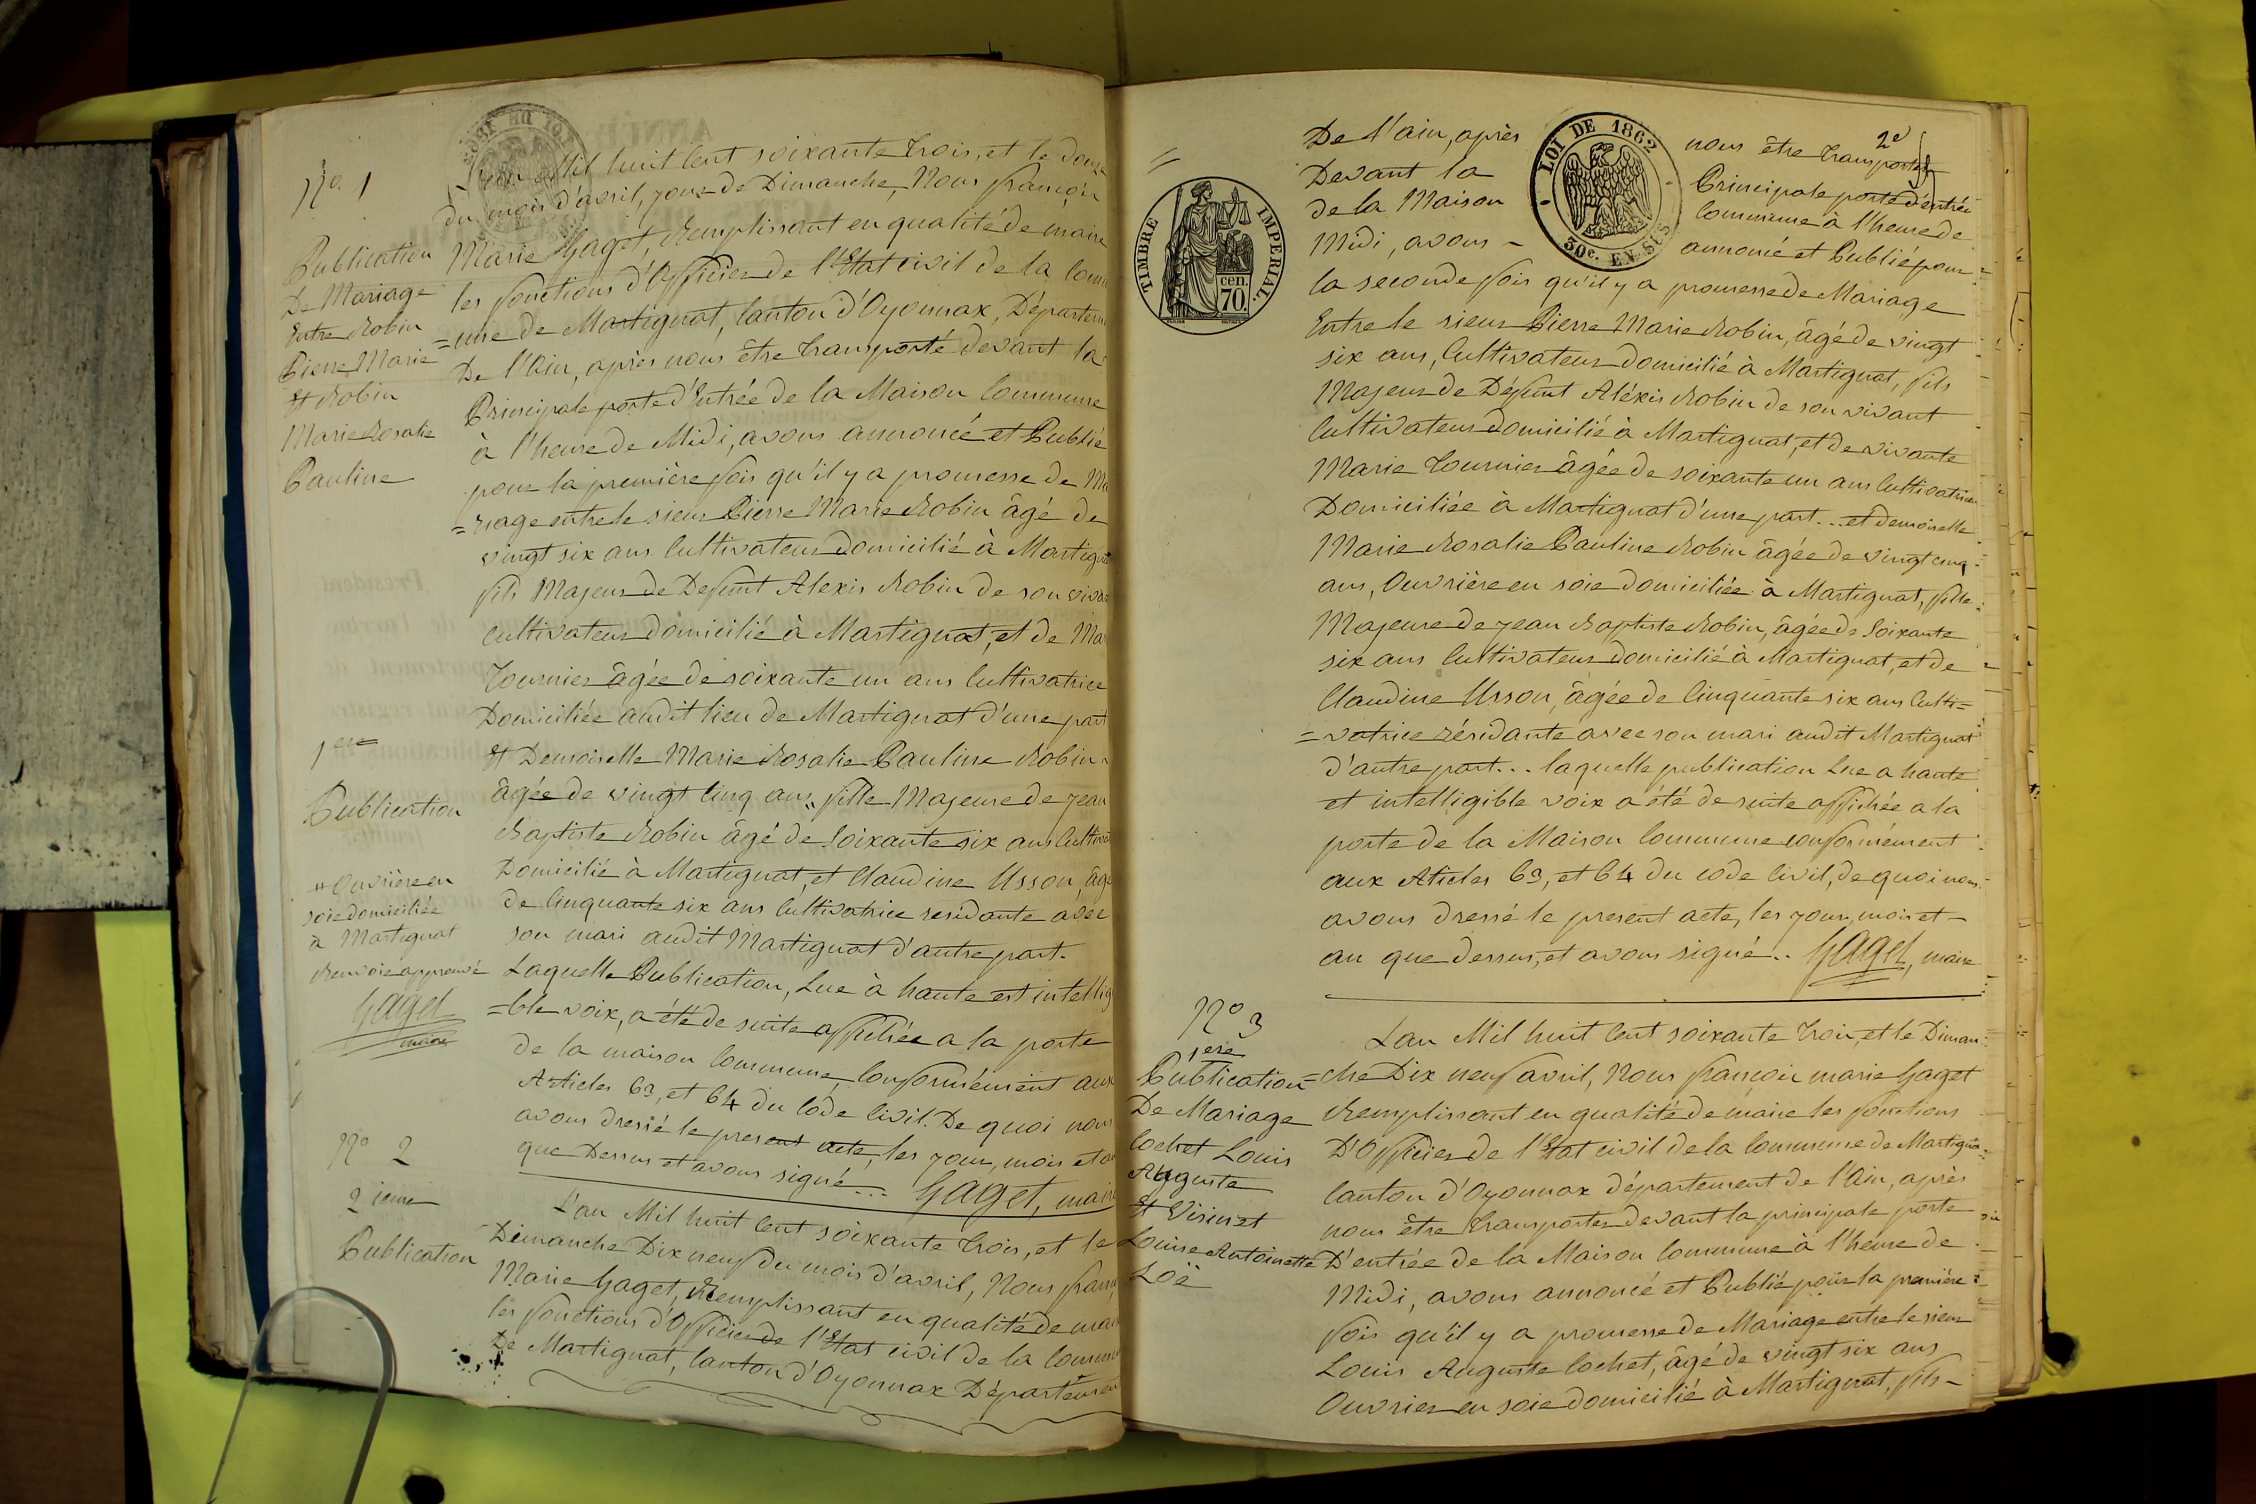 N.o 1
Publication
De Mariage
Entre Robin
Pierre Marie
Et Robin
Marie Rosalie
Pauline
L'an Mil huit Cent soixante trois, et le douze
du mois d'avril, jour de Dimanche, Nous françois
Marie Gaget, Remplissant en qualité de maire
les fonctions d'Officier de l'Etat civil de la Comm
=une de Martignat, Canton d'Oyonnax, Départem
De l'Ain, après nous être transporté devant la
Principale porte d'Entrée de la Maison Commune
à l'heure de Midi, avons annoncé et Publié
pour la première fois qu'il y a promesse de Ma
=riage entre le sieur Pierre Marie Robin âgé de
vingt six ans Cultivateur domicilié à Martignat
fils Majeur de Defunt Alexis Robin de son vivant
cultivateur domicilié à Martignat, et de Ma
Tournier âgée de soixante un ans Cultivatrice
Domiciliée audit lieu de Martignat d'une part
Et Demoiselle Marie Rosalie Pauline Robin
âgée de vingt Cinq ans " fille Majeure de Jean
Baptiste Robin âgé de Soixante six ans Cultiva
Domicilié à Martignat, et Claudine Usson, âgé
de Cinquante six ans Cultivatrice residante avec
son mari audit Martignat d'autre part.
Laquelle Publication, Lue à haute est intellig
=ble voix, a été de suite affichée a la porte
de la maison Commune, Conformément aux
Articles 63, et 64 du Code Civil. De quoi nous
avons dressé le present acte, les jour, mois et an
que Dessus et avons signé... Gaget, maire
1ere
Publication
" Ouvrière en
soie domiciliée
à Martignat
Renvoie approuvé
Gaget
maire
N.o 2
2ieme
Publication
L'an Mil huit Cent soixante trois, et le
Dimanche Dix neuf du mois d'avril, Nous franç
Marie Gaget, Remplissant en qualité de mai
les fonctions d'Officier de l'Etat civil de la Commun
De Martignat, Canton d'Oyonnax Département
TIMBRE IMPERIAL.
cen. 70.
LOI DE 1862
30c. EN SUS
2e
De l'ain, après nous être transportés
Devant la Principale porte d'entrée
de la Maison Commune à l'heure de
Midi, avons - annoncé et Publié pour
la seconde fois qu'il y a promesse de Mariage
Entre le sieur Pierre Marie Robin, âgé de vingt
six ans, Cultivateur domicilié à Martignat, fils
Majeur de Défunt Aléxis Robin de son vivant
Cultivateur domicilié à Martignat, et de vivante
Marie Tournier âgée de soixante un ans Cultivatrice
Domiciliée à Martignat d'une part... et demoiselle
Marie Rosalie Pauline Robin âgée de vingt cinq
ans, Ouvrière en soie domiciliée à Martignat, fille
Majeure de Jean Baptiste Robin, âgée de Soixante
six ans Cultivateur domicilié à Martignat, et de
Claudine Usson, âgée de Cinquante six ans Culti=
=vatrice résidante avec son mari audit Martignat
d'autre part... laquelle publication Lue a haute
et intelligible voix a été de suite affichée a la
porte de la Maison Commune conformément
aux Aticles 63, et 64 du code Civil, de quoi nous
avons dressé le present acte, les jour, mois et -
an que dessus, et avons signé.. Gaget, maire
N.o 3
1ere
Publication
De Mariage
Cochet Louis
Auguste
Et Visinet
Louise Antoinette
Loë
L'an Mil huit Cent soixante trois, et le Diman
=che Dix neuf avril, Nous françois marie Gaget
Remplissant en qualité de maire les fonctions
D'Officier de l'Etat civil de la Commune de Martigna
Canton d'Oyonnax département de l'Ain, après
nous être transportés devant la principale porte
D'entrée de la Maison Commune à l'heure de
Midi, avons annoncé et Publié pour la première
fois qu'il y a promesse de Mariage entre le sieur
Louis Auguste Cochet, âgé de vingt six ans
Ouvrier en soie domicilié à Martignat, fils -